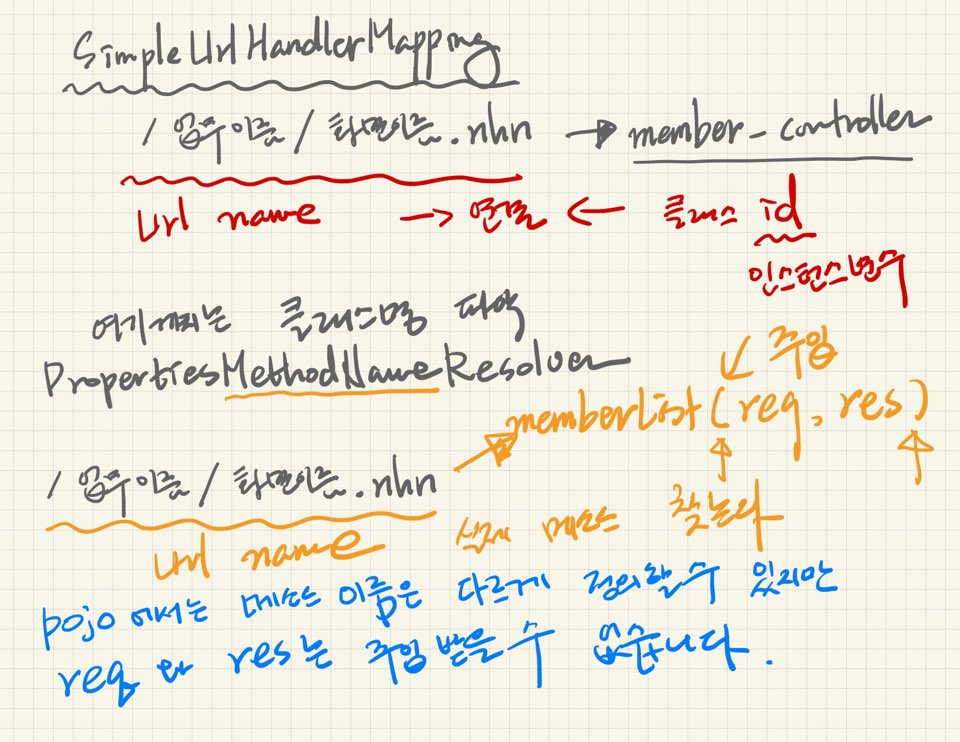 SimpleUrlHandlerMapping
/ 업무이름 / 화면이름.nhn → member-controller
Url name → 연결 ← 클래스 id
인스턴스변수
여기까지는 클래스명 파악
PropertiesMethodNameResolver
주입
memberList(req, res)
/ 업무이름 / 화면이름.nhn
url name 실제 메소드 찾는다
pojo 에서는 메소드 이름은 다르게 정의할수 있지만
req 와 res는 주입 받을 수 없습니다.